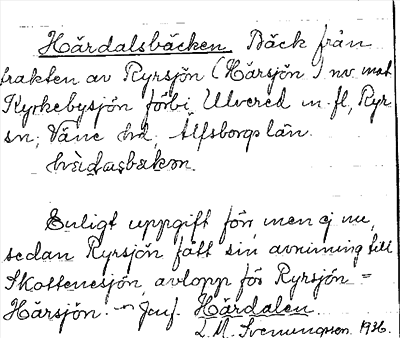 Härdalsbäcken Bäck från
trakten av Ryrsjön (Härsjön) nv. mot
Kyrkebysjön förbi Ulvered m. fl., Ryr
sn; Väne hd. Älfsborgs län.
Enligt uppgift förr, men ej nu,
sedan Ryrsjön fått sin avrinning till
Skottenesjön, avlopp för Ryrsjön =
Härsjön. – Jmf. Härdalen
L.M. Svenungsson 1936.